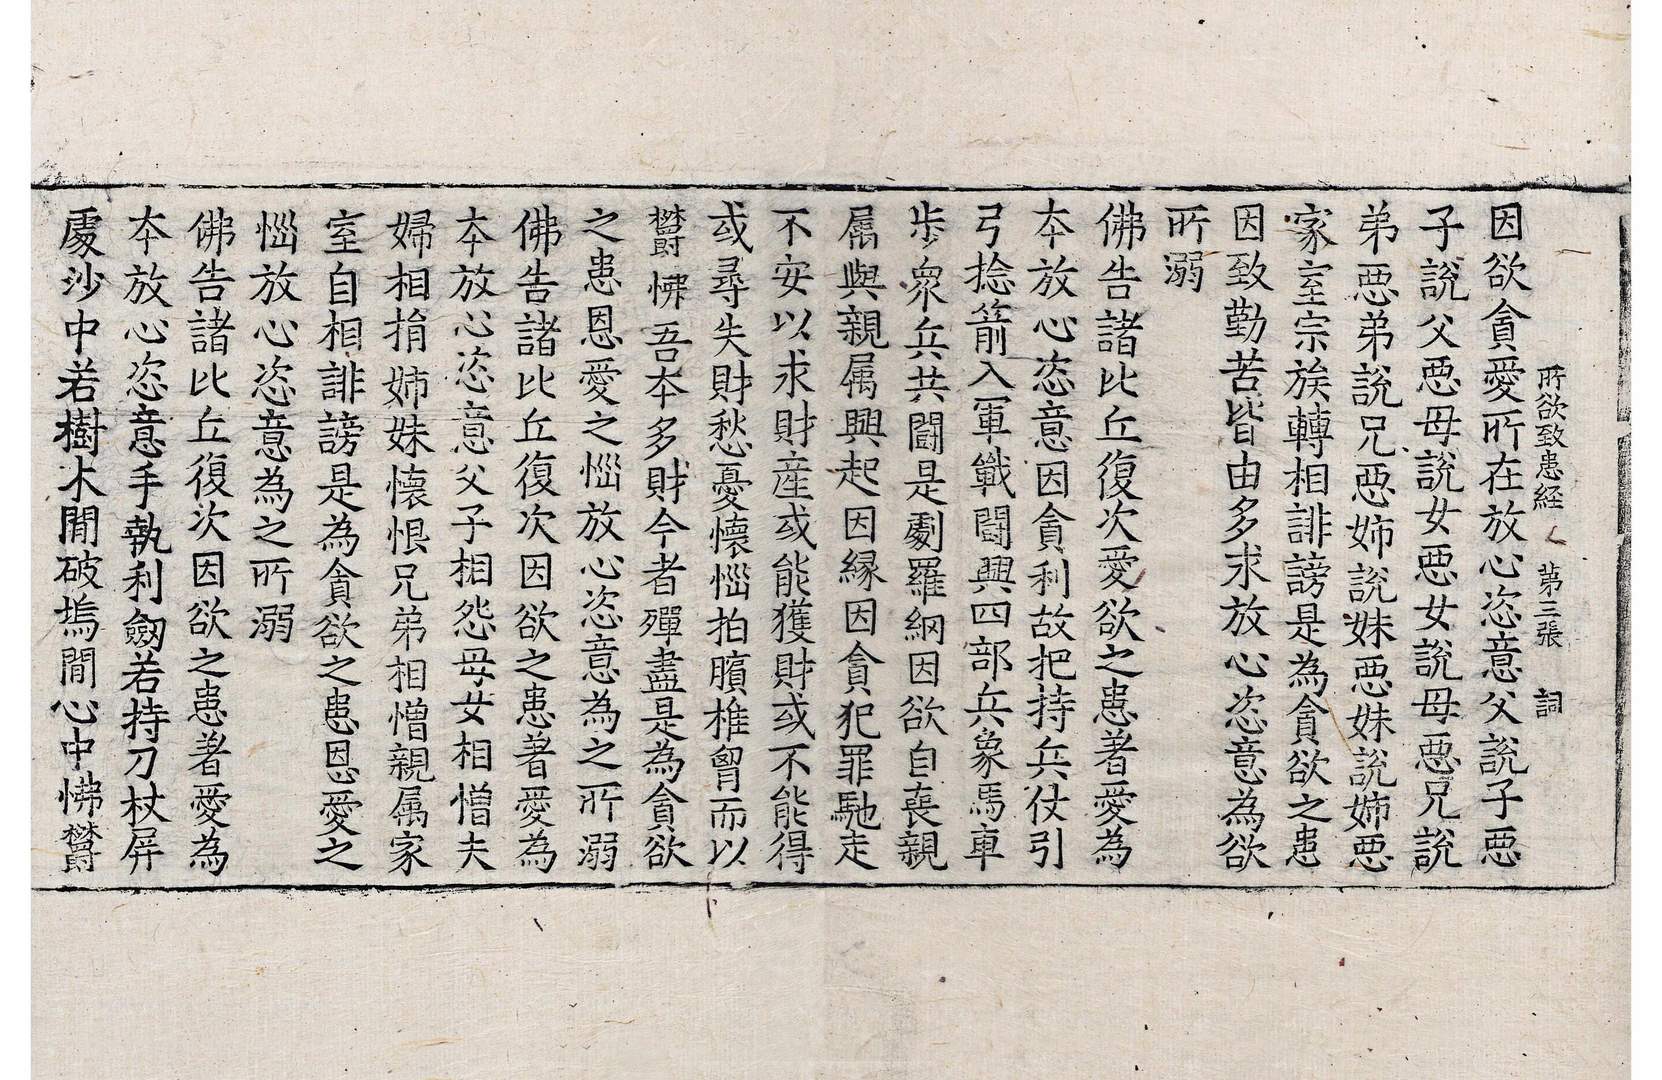 所欲致患経 第三張 詞
因欲貪愛所在放心恣意父說子惡
子說父惡母說女惡女說母惡兄說
弟惡弟說兄惡姉說妹惡妹說姉惡
家室宗族轉相誹謗是為貪欲之患
因致勤苦皆由多求放心恣意為欲
所溺
佛告諸比丘復次愛欲之患著愛為
本放心恣意因貪利故把持兵仗引
弓捻箭入軍戰鬪興四部兵象馬車
步衆兵共鬪是劇羅網因欲自喪親
属與親属興起因縁因貪犯罪馳走
不安以求財産或能獲財或不能得
或尋失財愁憂懷惱拍臏椎胷而以
欝怫吾本多財今者殫盡是為貪欲
之患恩愛之惱放心恣意為之所溺
佛告諸比丘復次因欲之患著愛為
本放心恣意父子相怨母女相憎夫
婦相捐姉妹懷恨兄弟相憎親属家
室自相誹謗是為貪欲之患恩愛之
惱放心恣意為之所溺
佛告諸比丘復次因欲之患著愛為
本放心恣意手執利劒若持刀杖屏
處沙中若樹木閒破塢閒心中怫欝